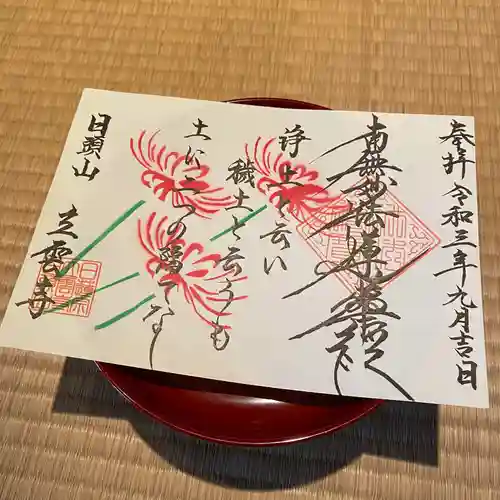 奉拝 令和三年九月吉日
南無妙法蓮華経
浄土と云い
穢土と云うも
土に二つの
隔てなし
日頭山
立雲寺